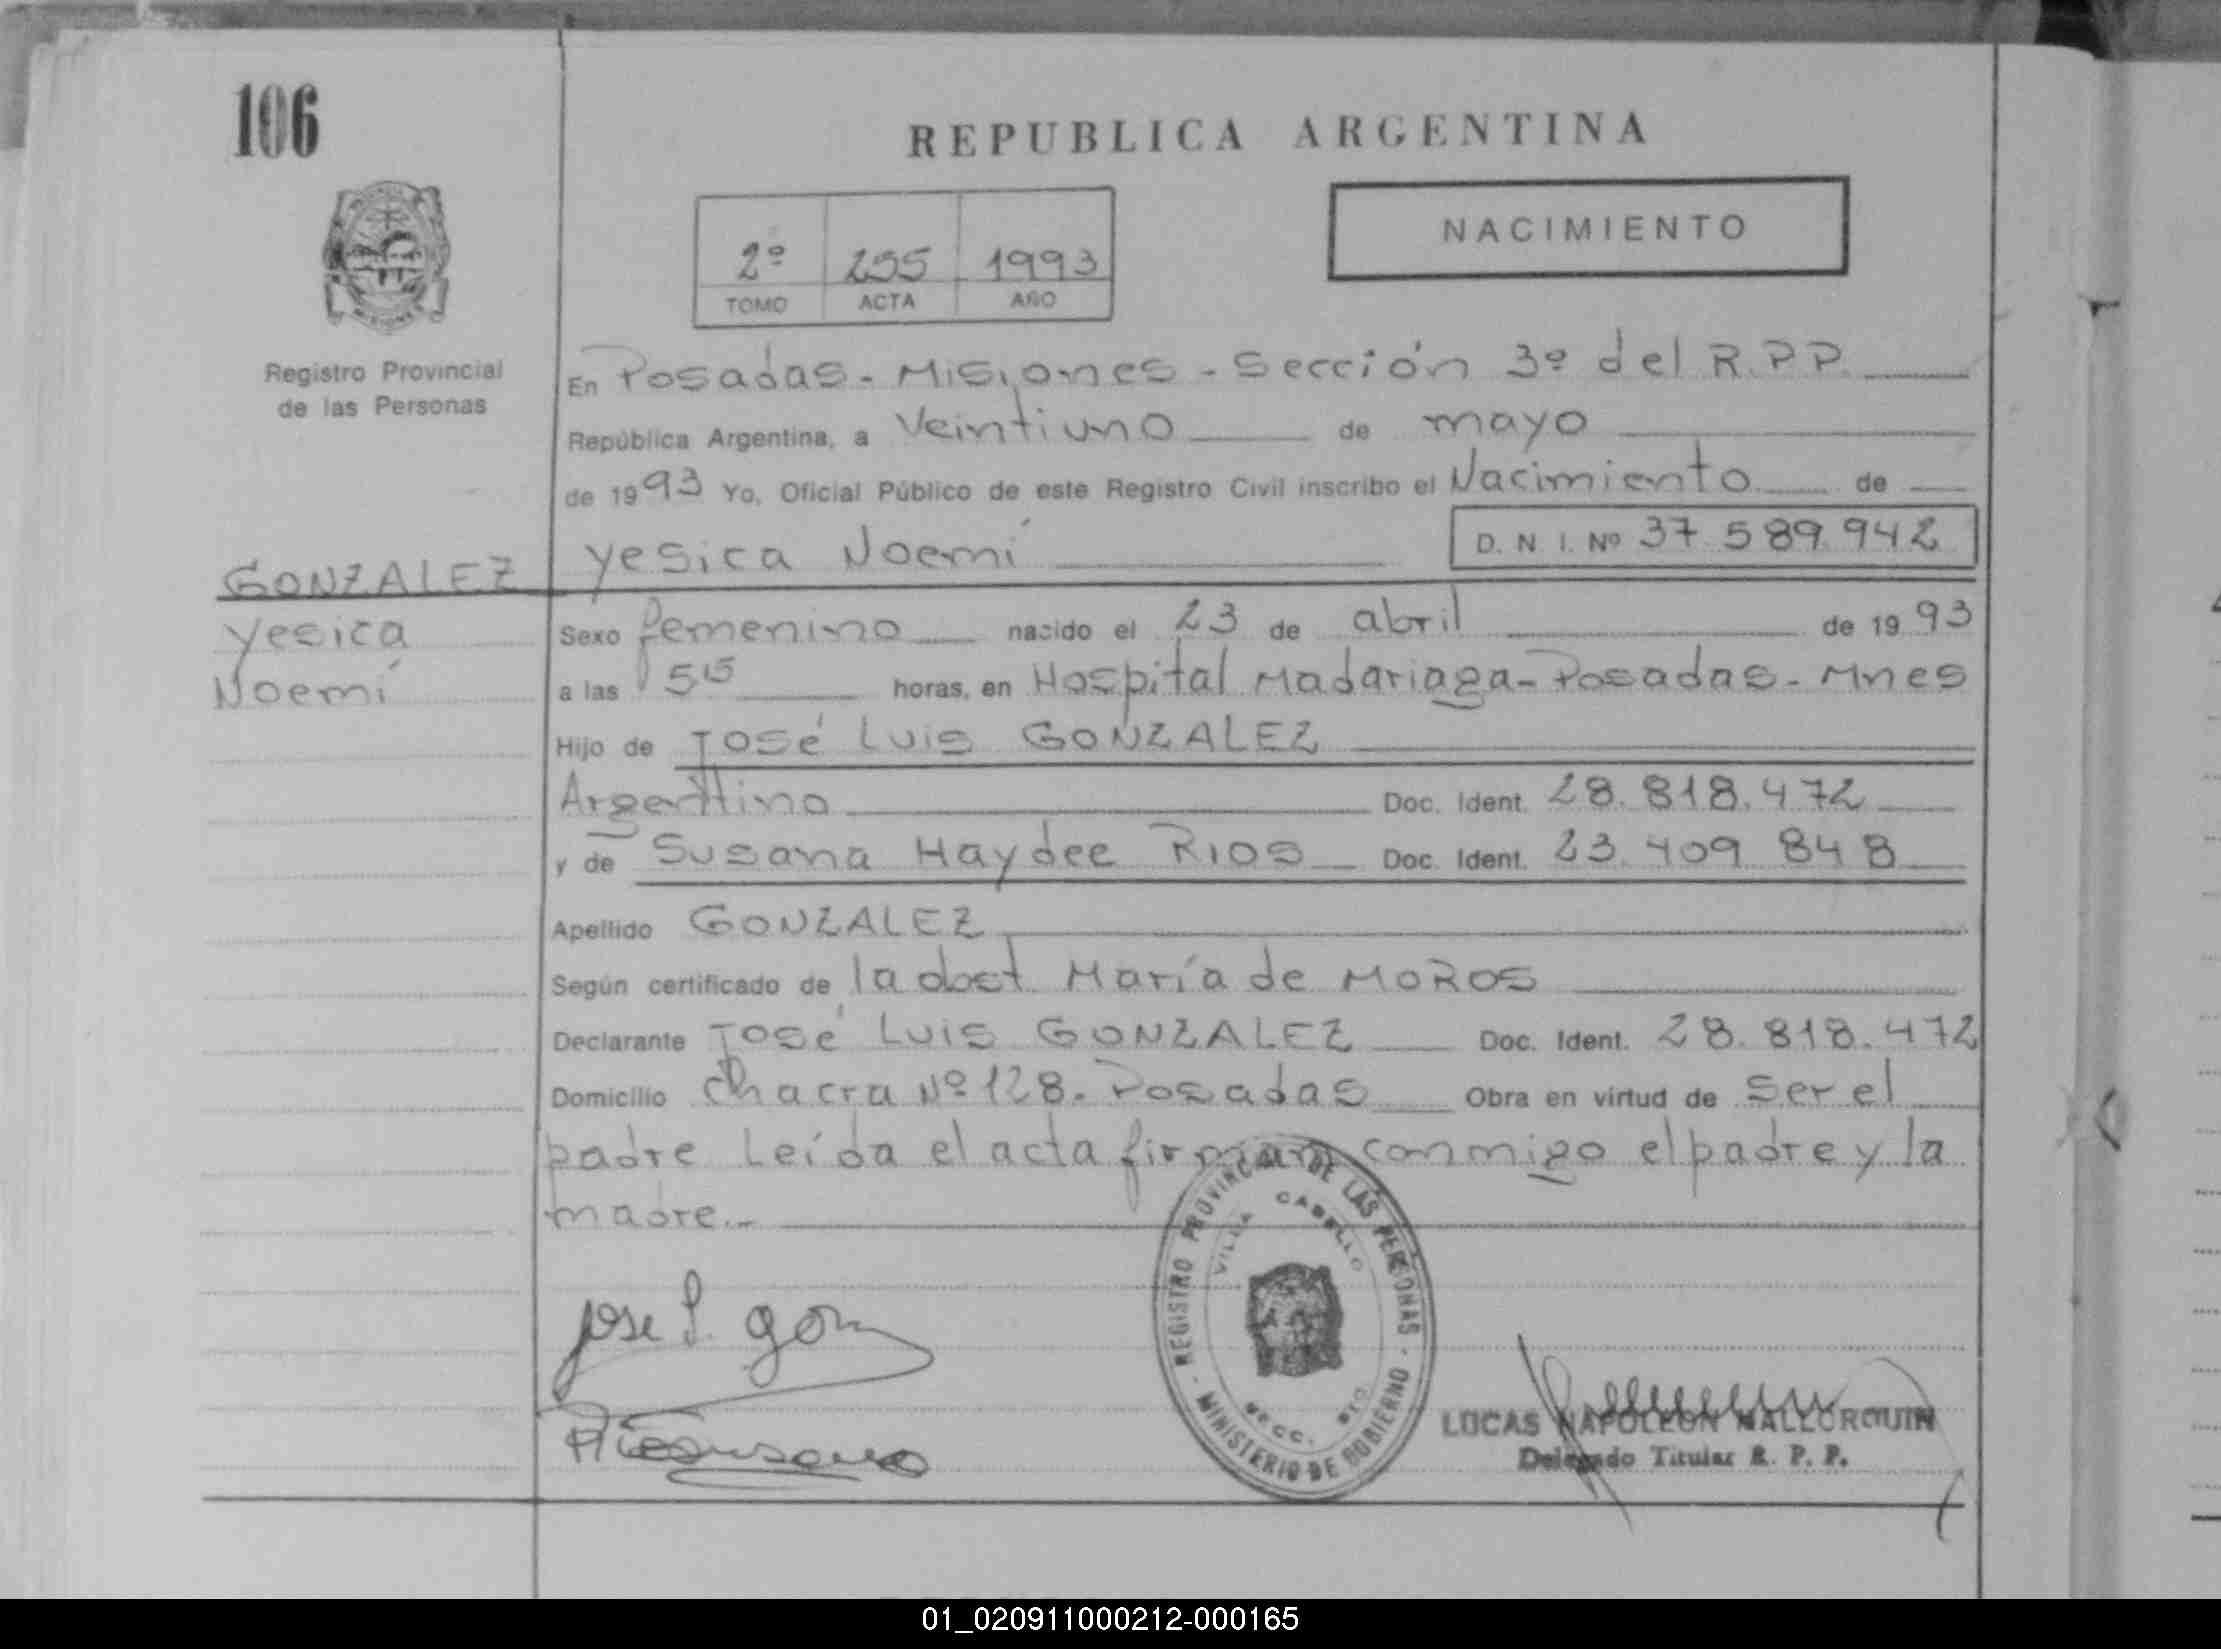 106
REPUBLICA ARGENTINA
NACIMIENTO
2º 255 1993
TOMO ACTA AÑO
MISIONES
Registro Provincial
de las Personas
En Posadas - Misiones - Sección 3º del R.P.P.
República Argentina, a Veintiuno de mayo
de 1993 Yo, Oficial Público de este Registro Civil inscribo el Nacimiento de
Yesica Noemí D. N. I. Nº 37.589.942
GONZALEZ
Yesica
Noemí
Sexo femenino nacido el 23 de abril de 1993
a las 5 15 horas, en Hospital Madariaga - Posadas - Mnes
Hijo de José Luis GONZALEZ
Argentino Doc. Ident. 28.818.472
y de Susana Haydee RIOS Doc. Ident. 23.409.848
Apellido GONZALEZ
Según certificado de la doct María de MOROS
Declarante José Luis GONZALEZ Doc. Ident. 28.818.472
Domicilio Chacra Nº 128. Posadas Obra en virtud de ser el
padre Leída el acta firman conmigo el padre y la
madre.-
Jose L. Gon
REGISTRO PROVINCIAL DE LAS PERSONAS - MINISTERIO DE GOBIERNO -
VILLA CABELLO
SECC.
LUCAS NAPOLEON MALLORQUIN
Delegado Titular R. P. P.
01_020911000212-000165